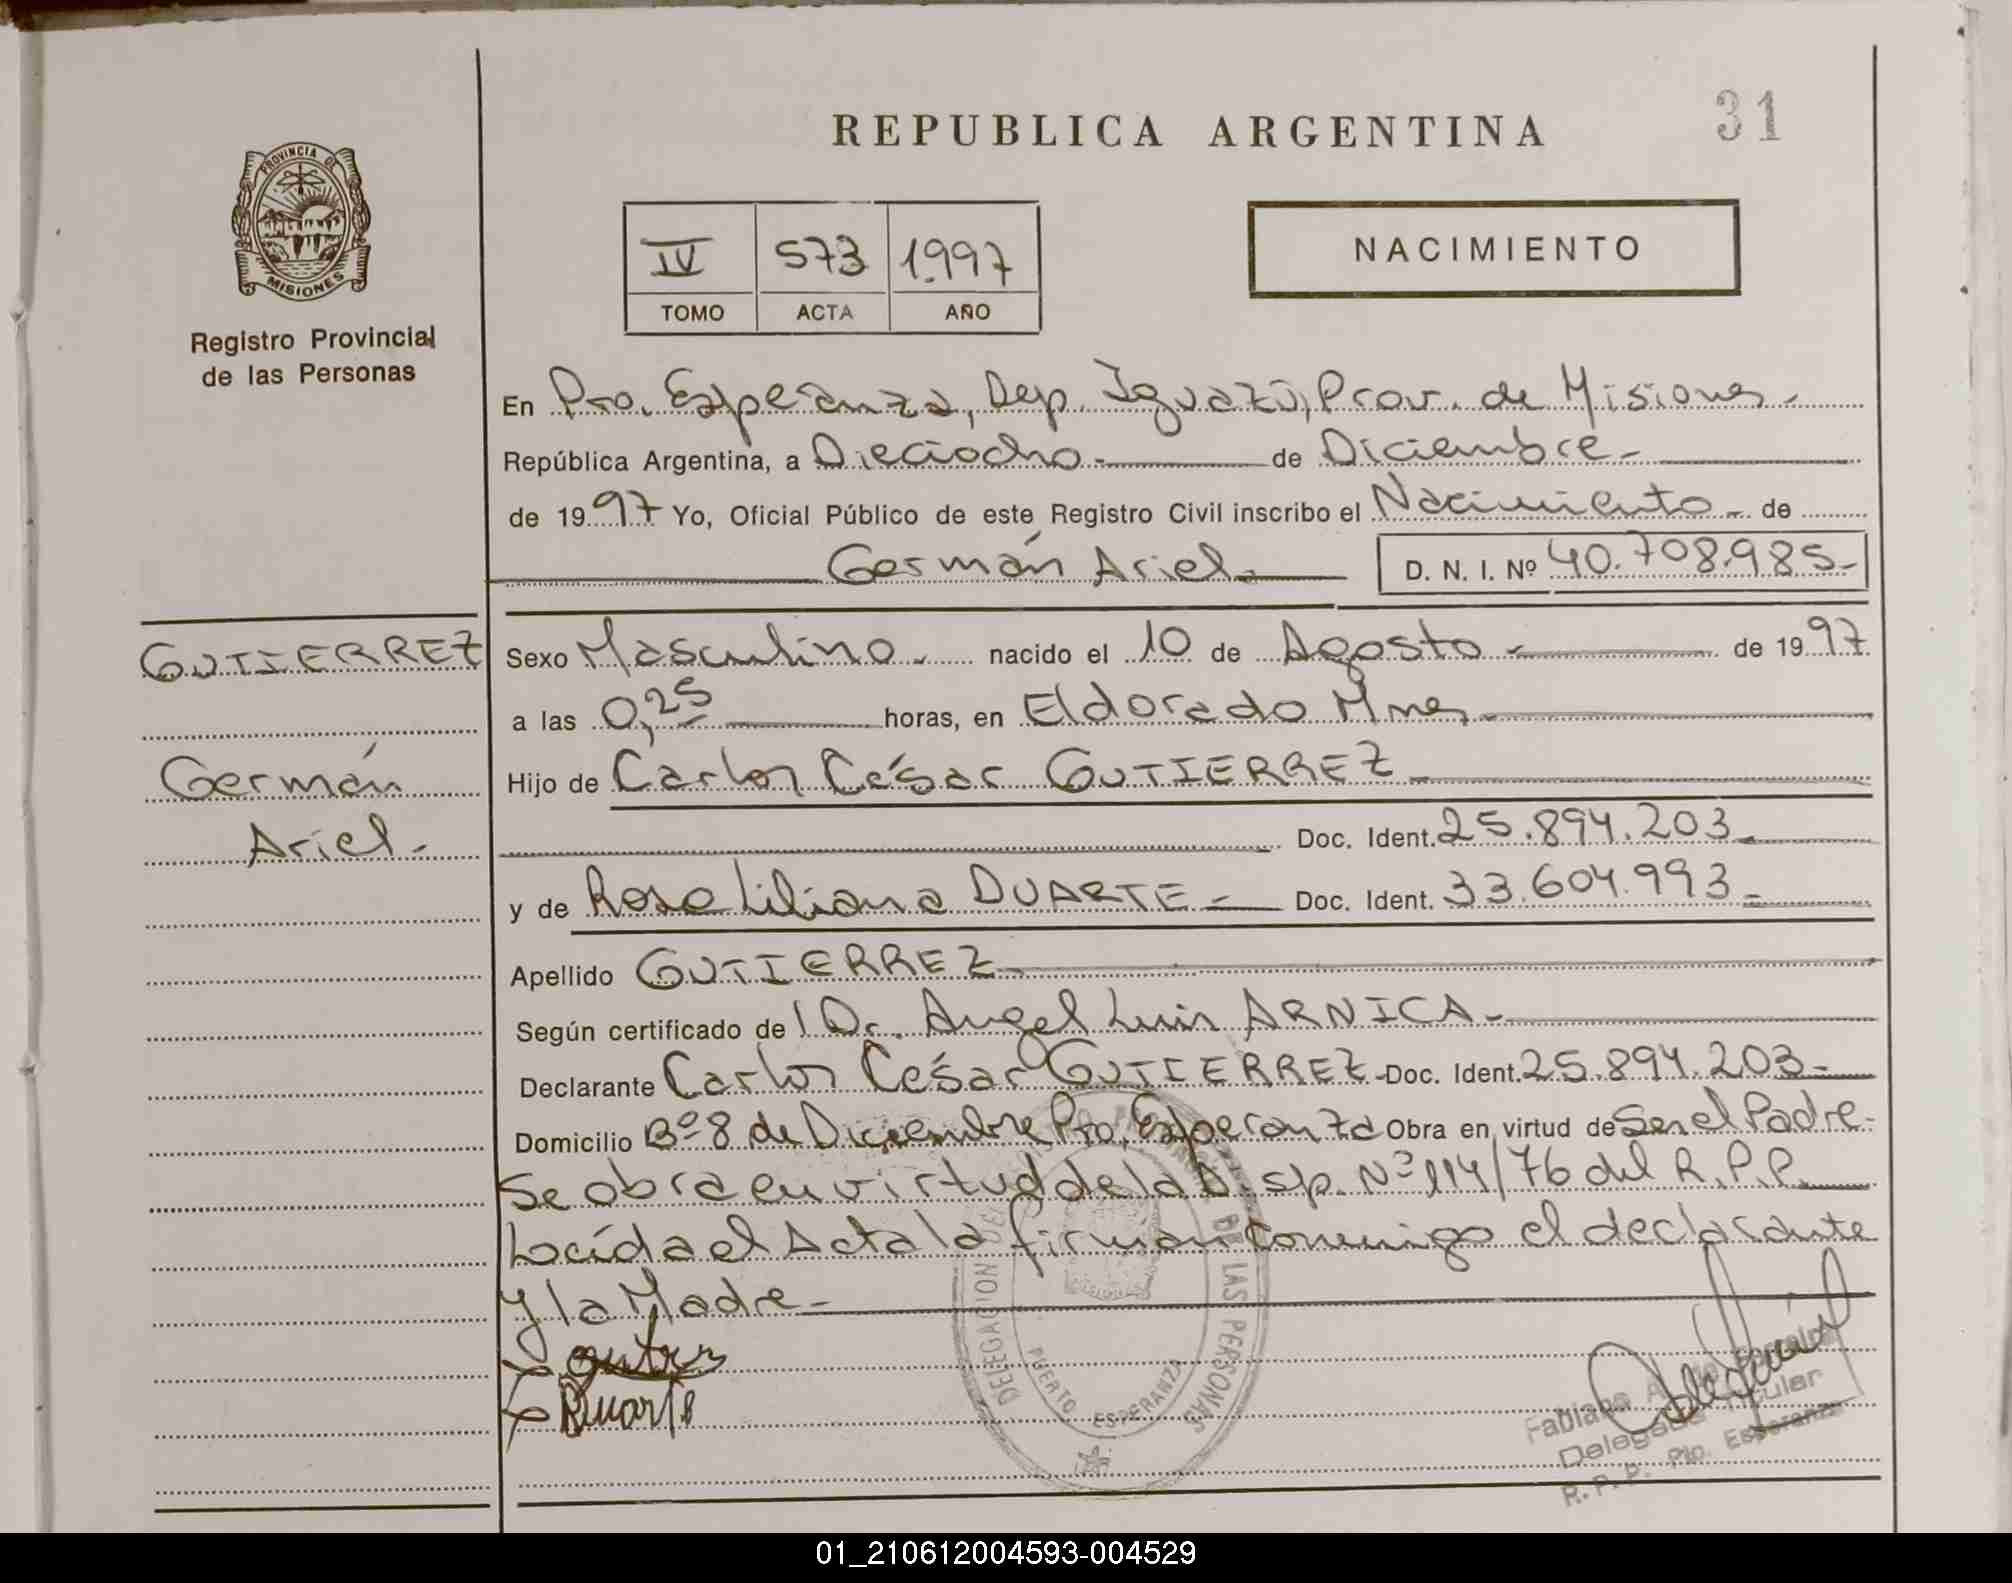 REPUBLICA ARGENTINA
31
PROVINCIA DE
MISIONES
Registro Provincial
de las Personas
IV 573 1.997
TOMO ACTA AÑO
NACIMIENTO
En Pto. Esperanza, Dep. Iguazú, Prov. de Misiones.-
República Argentina, a Dieciocho.- de Diciembre.-
de 1997 Yo, Oficial Público de este Registro Civil inscribo el Nacimiento.- de
Germán Ariel.- D. N. I. Nº 40.708.985.-
GUTIERREZ
Germán
Ariel.-
Sexo Masculino.- nacido el 10 de Agosto.- de 1997
a las 0,25 horas, en Eldorado Mnes.-
Hijo de Carlos César GUTIERREZ.-
Doc. Ident. 25.894.203.-
y de Rosa Liliana DUARTE.- Doc. Ident. 33.604.993.-
Apellido GUTIERREZ.-
Según certificado de l Dr. Angel Luis ARNICA.-
Declarante Carlos César GUTIERREZ.- Doc. Ident. 25.894.203.-
Domicilio Bº 8 de Diciembre Pto. Esperanza Obra en virtud de Ser el Padre.-
Se obra en virtud de la Disp. Nº 114/76 del R.P.P.
Leída el Acta la firman conmigo el declarante
y la Madre.-
DELEGACION DE LAS PERSONAS
PUERTO ESPERANZA
Delegada Titular
R. P. P. Pto. Esperanza
01_210612004593-004529